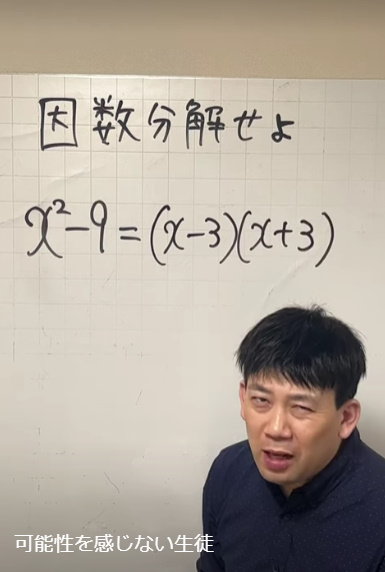 因数分解せよ
x²-9=(x-3)(x+3)
可能性を感じない生徒